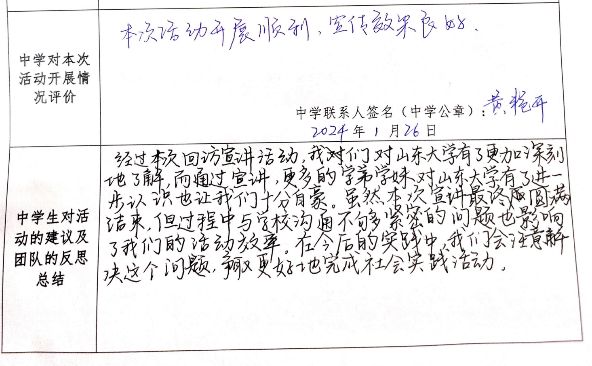 中学对本次
活动开展情
况评价
本次活动开展顺利、宣传效果良好。
中学联系人签名（中学公章）：黄艳平
2024年1月26日
中学生对活
动的建议及
团队的反思
总结
经过本次回访宣讲活动，我对们对山东大学有了更加深刻
地了解，而通过宣讲，更多的学弟学妹对山东大学有了进一
步认识也让我们十分自豪。虽然本次宣讲最终圆满
结束，但过程中与学校沟通不够紧密的问题也影响
了我们的活动效率。在今后的实践中，我们会注意解
决这个问题，争取更好地完成社会实践活动。